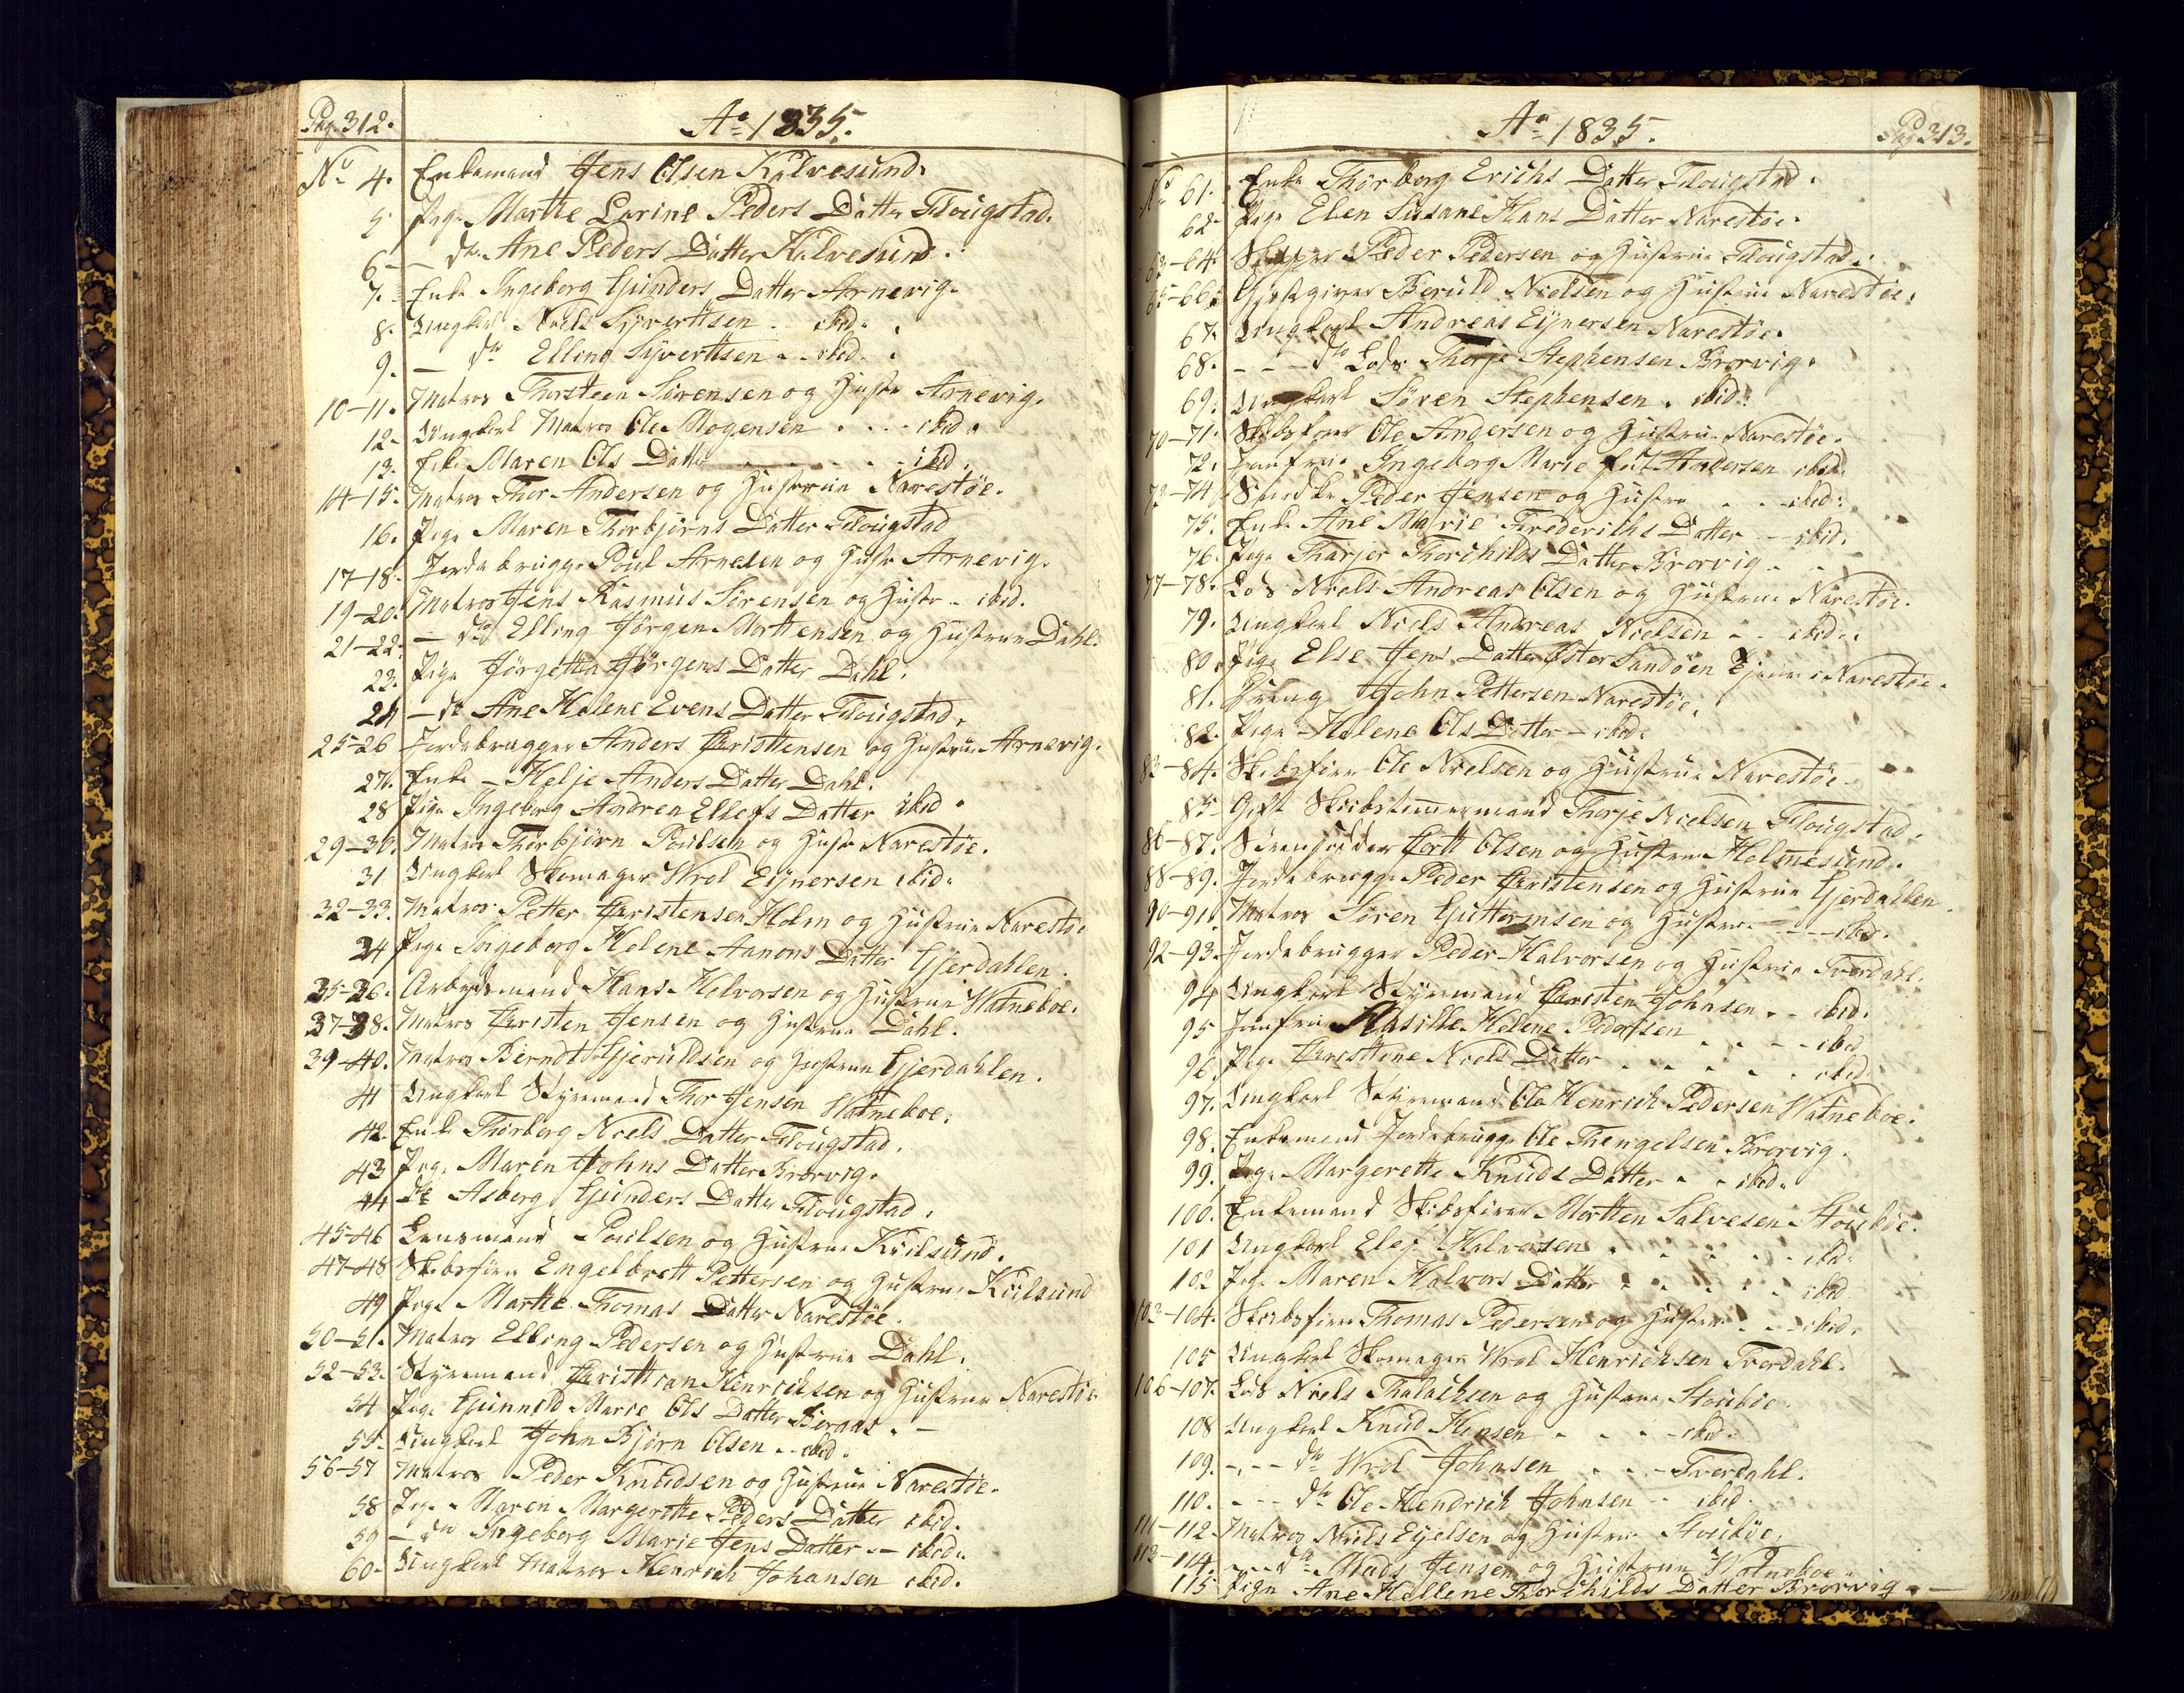 Pag. 312.
Ao 1835.
No 4. Enkemand Jens Olsen Kalvesund.
5 Pige Marthe Lorine Peders Datter Flougstad.
6 — do Ane Peders Datter Kalvesund.
7. Enke Ingeborg Gunders Datter Arnevig.
8. Ungkarl Niels Syvertsen . ibid.
9. — do Elling Syvertsen . . ibid.
10-11. Matros Thorsteen Sörensen og Hustr Arnevig.
12. Ungkarl Matros Ole Mogensen . . . ibid.
13. Enke Maren Ols Datter . . . ibid.
14-15. Matros Thor Andersen og Hustrue Narestöe.
16. Pige Maren Thorbjörns Datter Flougstad
17-18. Jordebrugge Poul Arnesen og Hustr Arnevig.
19-20. Matros Jens Rasmus Sörensen og Hustr .. ibid.
21-22. — do Elling Jörgen Mortensen og Hustrue Dahl.
23. Pige Jörgethea Jörgens Datter Dahl.
24 — do Ane Helene Evens Datter Flougstad.
25-26 Jordebrugger Anders Christensen og Hustrue Arnevig.
27. Enke — Helje Anders Datter Dahl.
28 Pige Ingeborg Andrea Ellefs Datter ibid.
29-30. Matros Thorbjörn Poulsen og Hustr Narestöe.
31 Ungkarl Skomager Wrol Eynersen ibid.
32-33. Matros Petter Christensen Holm og Hustrue Narestöe
34 Pige Ingeborg Helene Aanons Datter Gjerdahlen.
35-36. Arbeydsmand Hans Halvorsen og Hustrue Watneboe.
37-38. Matros Christen Jensen og Hustrue Dahl.
39-40. Matros Berndt Gjeruldsen og Hustrue Gjerdahlen.
41 Ungkarl Styrmand Thor Jensen Watneboe.
42. Enke Thorborg Niels Datter Flougstad.
43 Pige Maren Johns Datter Brorvig.
44 do Asberg Gunders Datter Flougstad.
45-46 Lensmand Poulsen og Hustrue Kiilsund.
47-48 Skibsförer Engelbrett Pettersen og Hustrue Kiilsund
49 Pige Marthe Thomas Datter Narestöe.
50-51. Matros Elling Pedersen og Hustrue Dahl.
52-53. Styrmand Christian Henrichsen og Hustrue Narestöe
54 Pige Gunnild Marie Ols Datter Boraas. —
55. Ungkarl John Björn Olsen .. ibid.
56-57 Matros Peder Knudsen og Hustrue Narestöe.
58 Pige Maren Margerethe Peders Datter ibid.
59 — do Ingeborg Marie Jens Datter .— ibid.
60. Ungkarl Matros Henrich Johansen ibid.
Ao 1835.
Pag 313.
No 61. Enke Thorborg Erichs Datter Flougstad.
62. Pige Elen Susane Hans Datter Narestöe.
63-64. Skipper Peder Pedersen og Hustrue Flougstad.
65-66. Gjestgiver Beruld Nielsen og Hustrue Narestöe.
67. Ungkarl Andreas Eynersen Narestöe.
68. - - - do Lods Thorje Stephensen Brorvig.
69. Ungkarl Sören Stephensen . ibid.
70-71. Skibsförer Ole Andersen og Hustrue Narestöe.
72. Jomfrue Ingeborg Marie föd Andersen ibid.
73-74. Snedker Peder Jensen og Hustrue . . ibid.
75. Enke Ane Marie Frederichs Datter — ibid.
76. Pige Tharjer Thorchilds Datter Brorvig . .
77-78. Lods Niels Andreas Olsen og Hustrue Narestöe.
79. Ungkarl Niels Andreas Nielsen . . ibid.
80. Pige Else Jens Datter Öster Sandöen Tjener i Narestöe.
81. Dreng John Pettersen Narestöe.
82. Pige Helene Ols Datter — ibid.
83-84. Skibsförer Ole Nielsen og Hustrue Narestöe.
85. Gift Skibstømmermand Thorje Nielsen Flougstad.
86-87. Ole Olsen og Hustrue Helmesund.
88-89. Jordebrugge Peder Christensen og Hustrue Gjerdahlen.
90-91. Matros Sören Guttormsen og Hustrue - - - ibid.
92-93. Jordebrugger Peder Halvorsen og Hustrue Tverdahl.
94 Ungkarl Styrmand Christen Johnsen . . ibid.
95 Jomfrue Helene Pedersen . . . ibid
96. Pige Christine Niels Datter . . . . . ibid.
97. Ungkarl Styrmand Ole Henrich Pedersen Watneboe.
98. Enkemand Jordebrugge Ole Thengelsen Brorvig.
99. Pige Margerethe Knuds Datter . . ibid.
100. Enkemand Skibsförer Morthen Salvesen Stouböe.
101 Ungkarl Elef Halvorsen . . . . ibid.
102 Pige Maren Halvors Datter . . . . . ibid.
103-104. Skibsförer Thomas Pedersen og Hustrue . . ibid.
105 Ungkarl Skomager Wrol Henrichsen Tverdahl.
106-107. Lods Niels Thalachsen og Hustrue Stouböe.
108 Ungkarl Knud Hansen . . . ibid.
109. - . - - do Wrol Johnsen . . . Tverdahl.
110. . - - - do Ole Hendrich Johnsen .. ibid.
111-112. Matros Niels Eyelsen og Hustrue Stouböe.
113-114. . - - - do Mads Jensen og Hustrue Watneboe.
115 Pige Ane Hellene Thorchilds Datter Brorvig. —